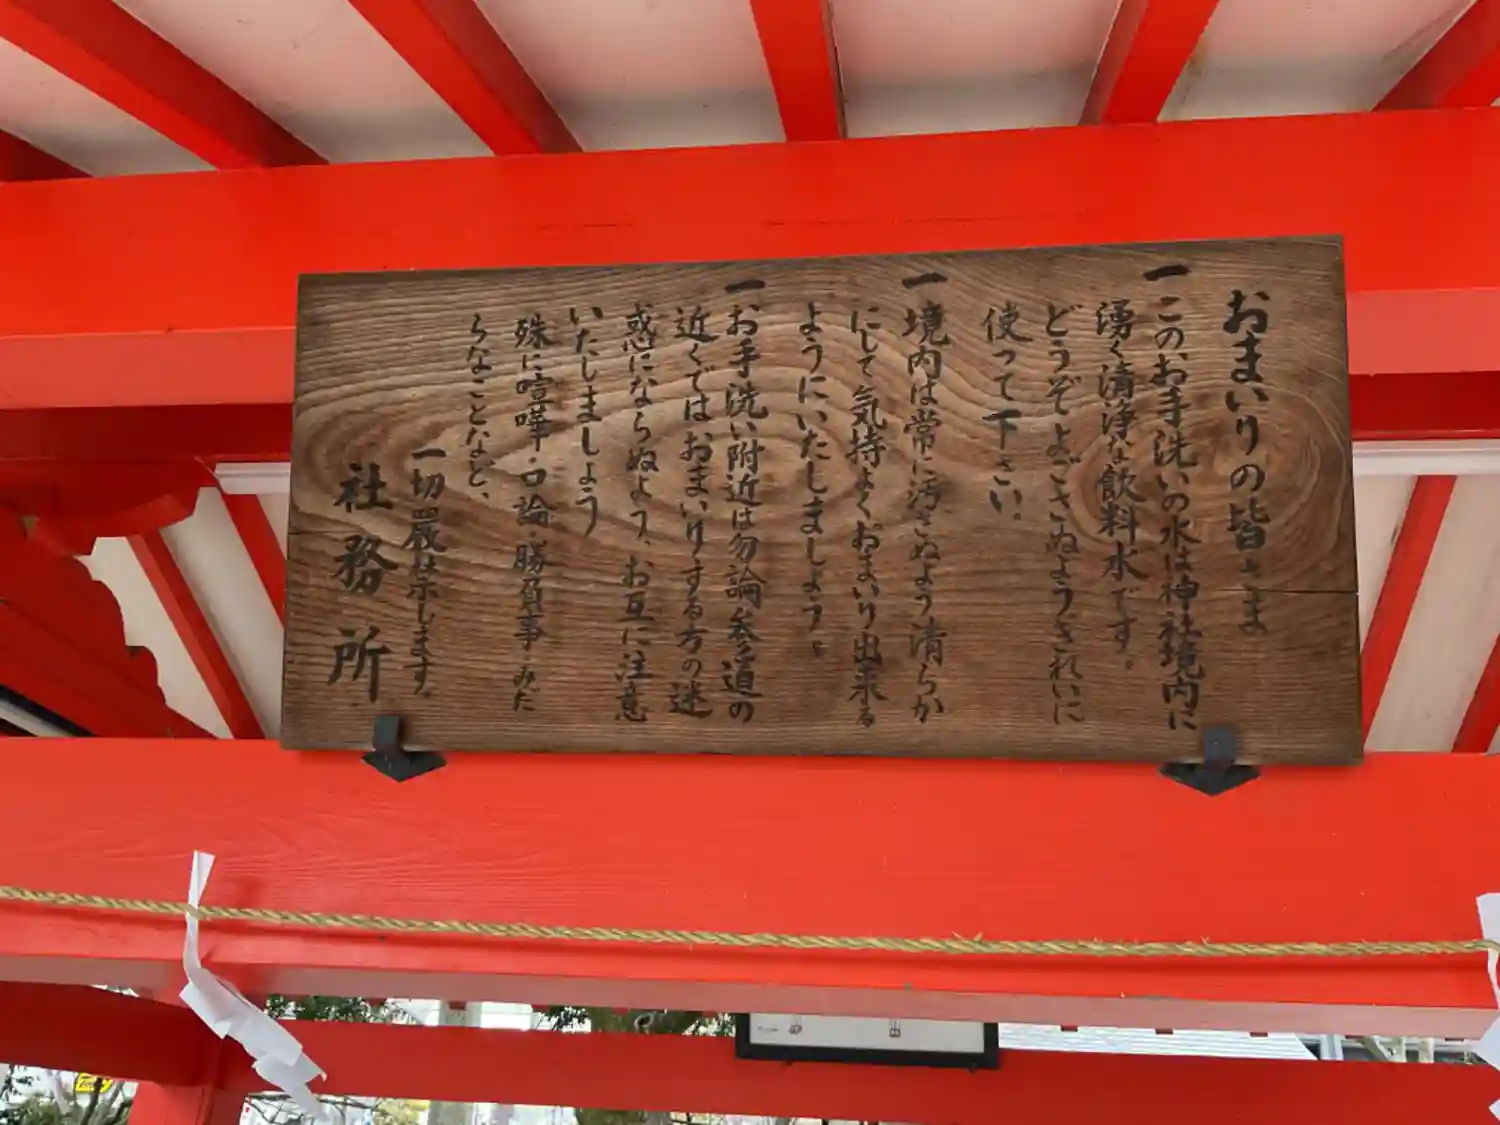 おまいりの皆さま
一このお手洗いの水は神社境内に
湧く清浄な飲料水です。
どうぞよごさぬようきれいに
使って下さい。
一境内は常に汚さぬよう清らか
にして気持よくおまいり出来る
ようにいたしましょう。
一お手洗い附近は勿論参道の
近くではおまいりする方の迷
惑にならぬよう、お互に注意
いたしましょう
殊に喧嘩・口論・勝負事みだ
らなことなど、
一切厳禁します。
社務所